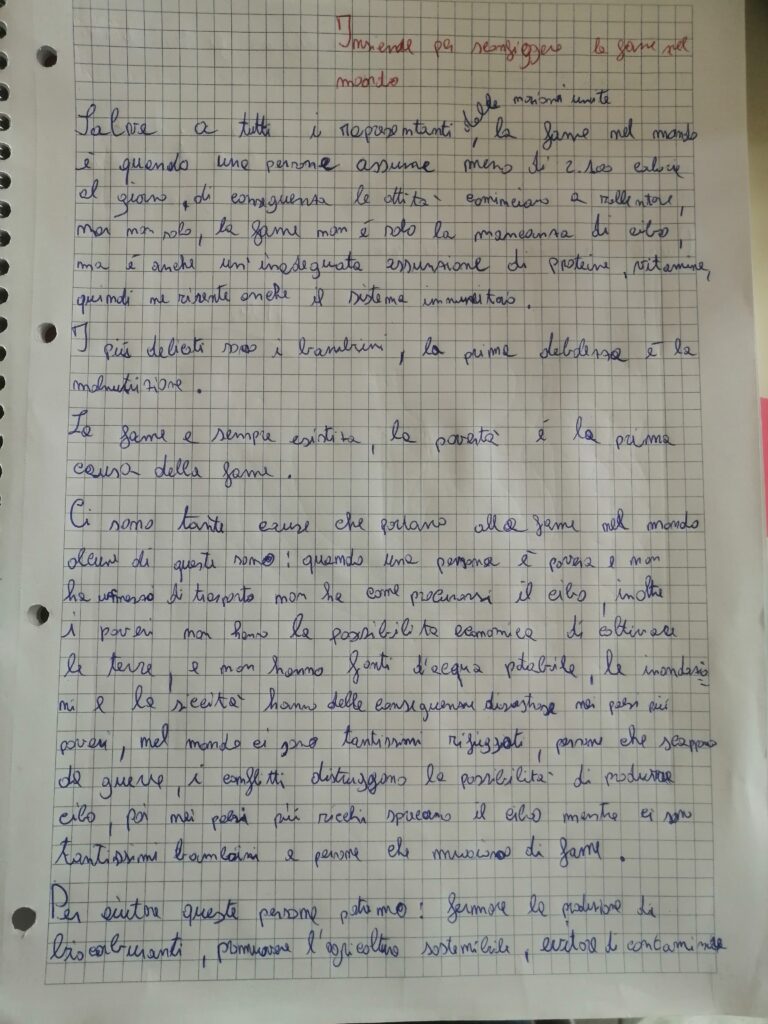 Insieme per sconfiggere la fame nel
mondo
delle nazioni unite
Salve a tutti i rapresentanti, la fame nel mondo
è quando una persona assume meno di 2.500 calorie
al giorno, di conseguenza le attità cominciano a rallentare,
non solo, la fame non è solo la mancanza di cibo,
ma è anche un'inadeguata assunzione di proteine, vitamine,
quindi ne risente anche il sistema immunitario.
I più delicati sono i bambini, la prima debolezza è la
malnutrizione.
La fame e sempre esistita, la povertà é la prima
causa della fame.
Ci sono tante cause che portano alla fame nel mondo
alcune di queste sono: quando una persona è povera e non
ha di trasporto non ha come procurarsi il cibo, inoltre
i poveri non hanno la possibilita economica di coltivare
le terre, e non hanno fonti d'acqua potabile, le inondazio
ni e la siccità hanno delle conseguenze disastrose nei paesi più
poveri, nel mondo ci sono tantissimi rifugiati, persone che scappano
da guerre, i conflitti distruggono la possibilità di produrre
cibo, poi nei paesi più ricchi sprecano il cibo mentre ci sono
tantissimi bambini e persone che muoiono di fame.
Per aiutare queste persone potremo: fermare la produzione di
biocarburanti, promuovere l'agricoltura sostenibile, evitare di contaminare